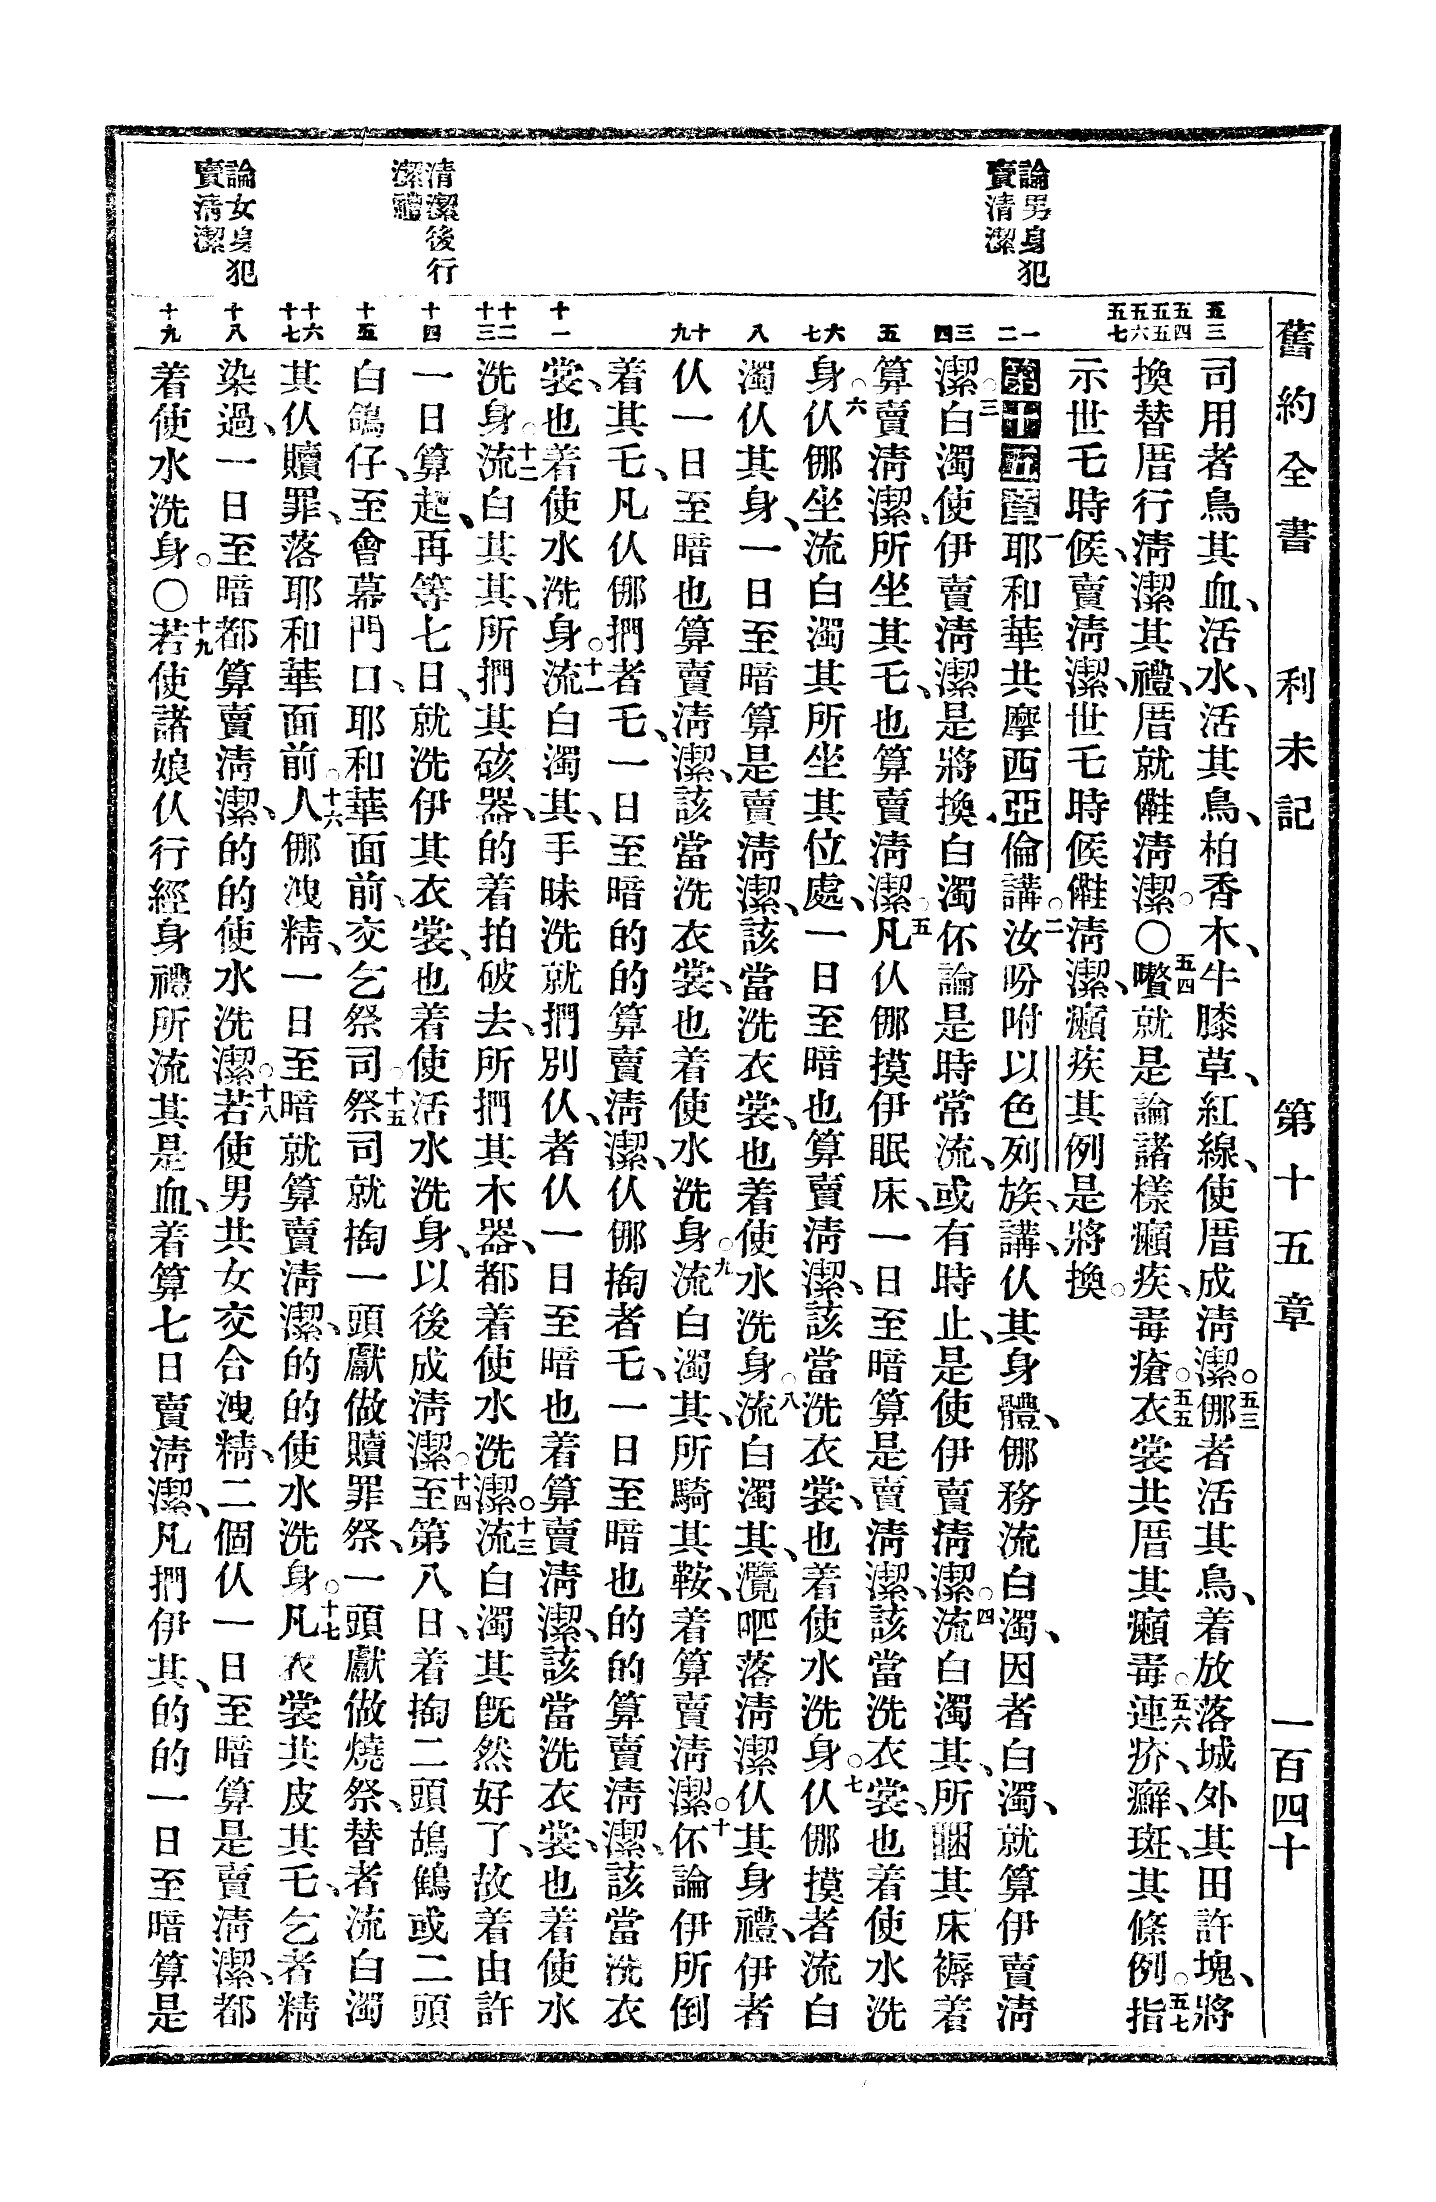 舊約全書 利未記 第十五章 一百四十
論男身犯
賣清潔
清潔後行
潔禮
論女身犯
賣清潔
五三
五四
五五
五六
五七
一
二
三
四
五
六
七
八
九
十
十一
十二
十三
十四
十五
十六
十七
十八
十九
司用者鳥其血、活水、活其鳥、柏香木、牛膝草、紅線、使厝成清潔。五三㑚者活其鳥、着放落城外其田許塊、將
換替厝行清潔其禮、厝就㒕清潔。〇五四囋就是論諸樣癩疾、毒瘡。五五衣裳共厝其癩毒。五六連疥、癬、斑、其條例。五七指
示世乇時候、賣清潔、世乇時候㒕清潔、癩疾其例是將換。
第十五章一耶和華共摩西、亞倫講。二汝吩咐以色列族、講、仈其身體、㑚務流白濁、因者白濁、就算伊賣清
潔。三白濁使伊賣清潔是將換、白濁伓論是時常流、或有時止、是使伊賣清潔。四流白濁其、所睏其床褥、着
算賣清潔、所坐其乇、也算賣清潔。五凡仈㑚摸伊眠床、一日至暗算是賣清潔、該當洗衣裳、也着使水洗
身。六仈㑚坐流白濁其所坐其位處、一日至暗也算賣清潔、該當洗衣裳、也着使水洗身。七仈㑚摸者流白
濁仈其身、一日至暗算是賣清潔、該當洗衣裳、也着使水洗身。八流白濁其、瀾吧落清潔仈其身禮、伊者
仈一日至暗也算賣清潔、該當洗衣裳、也着使水洗身。九流白濁其、所騎其鞍、着算賣清潔。十伓論伊所倒
着其乇、凡仈㑚捫者乇、一日至暗的的算賣清潔、仈㑚掏者乇、一日至暗也的的算賣清潔、該當洗衣
裳、也着使水洗身。十一流白濁其、手昧洗就捫別仈、者仈一日至暗也着算賣清潔、該當洗衣裳、也着使水
洗身。十二流白其其、所捫其硋器、的着拍破去、所捫其木器、都着使水洗潔。十三流白濁其旣然好了、故着由許
一日算起、再等七日、就洗伊其衣裳、也着使活水洗身、以後成清潔。十四至第八日、着掏二頭鴣鶴或二頭
白鴿仔、至會幕門口、耶和華面前、交乞祭司。十五祭司就掏一頭獻做贖罪祭、一頭獻做燒祭、替者流白濁
其仈贖罪、落耶和華面前。十六人㑚洩精、一日至暗就算賣清潔、的的使水洗身。十七凡衣裳共皮其乇、乞者精
染過、一日至暗都算賣清潔、的的使水洗潔。十八若使男共女交合洩精、二個仈一日至暗算是賣清潔、都
着使水洗身。〇十九若使諸娘仈行經、身禮所流其是血、着算七日賣清潔、凡捫伊其、的的一日至暗算是